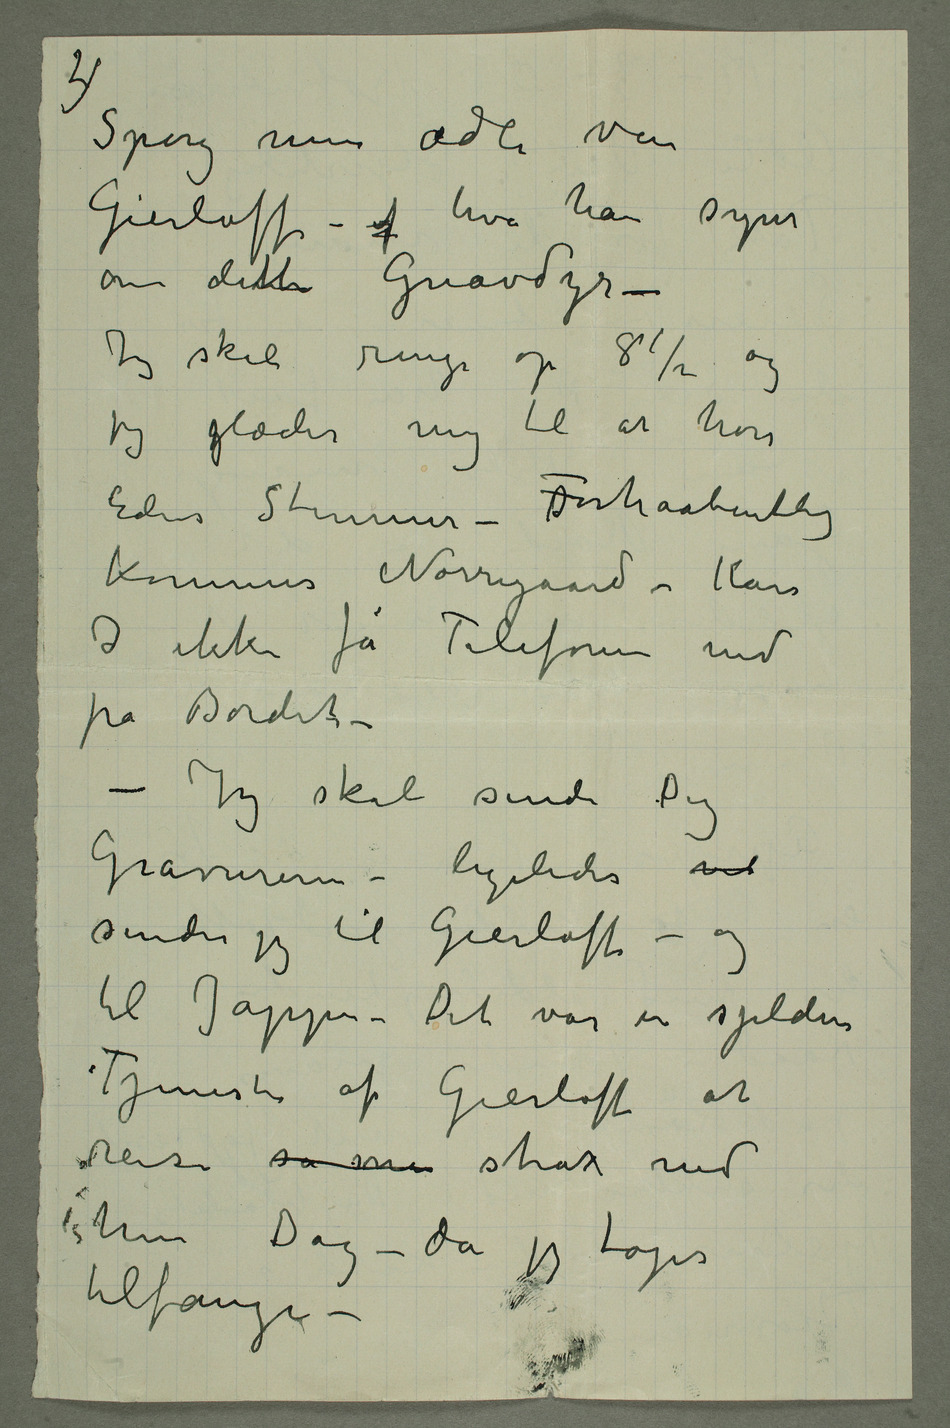 2)
Spørg min ædle ven
Gierløff – hva han synes
om dette Gnavdyr –
Jeg skal ringe op 8 1/2 og
jeg glæder mig til at høre
Eders Stemmer – Forhaabentlig
kommer Nørregaard – Kan
I ikke få Telefonen ned
på Bordet –
– Jeg skal sende Dig
Gravuren – ligeledes ved
sender jeg til Gierløff – og
til Jappe – Det var en sjelden
Tjeneste af Gierløff at
reise så min strax ned
hin Dag – da jeg toges
tilfange –